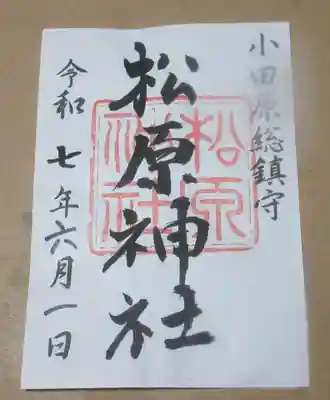 小田原総鎮守
松原神社
松原
神社
令和七年六月一日